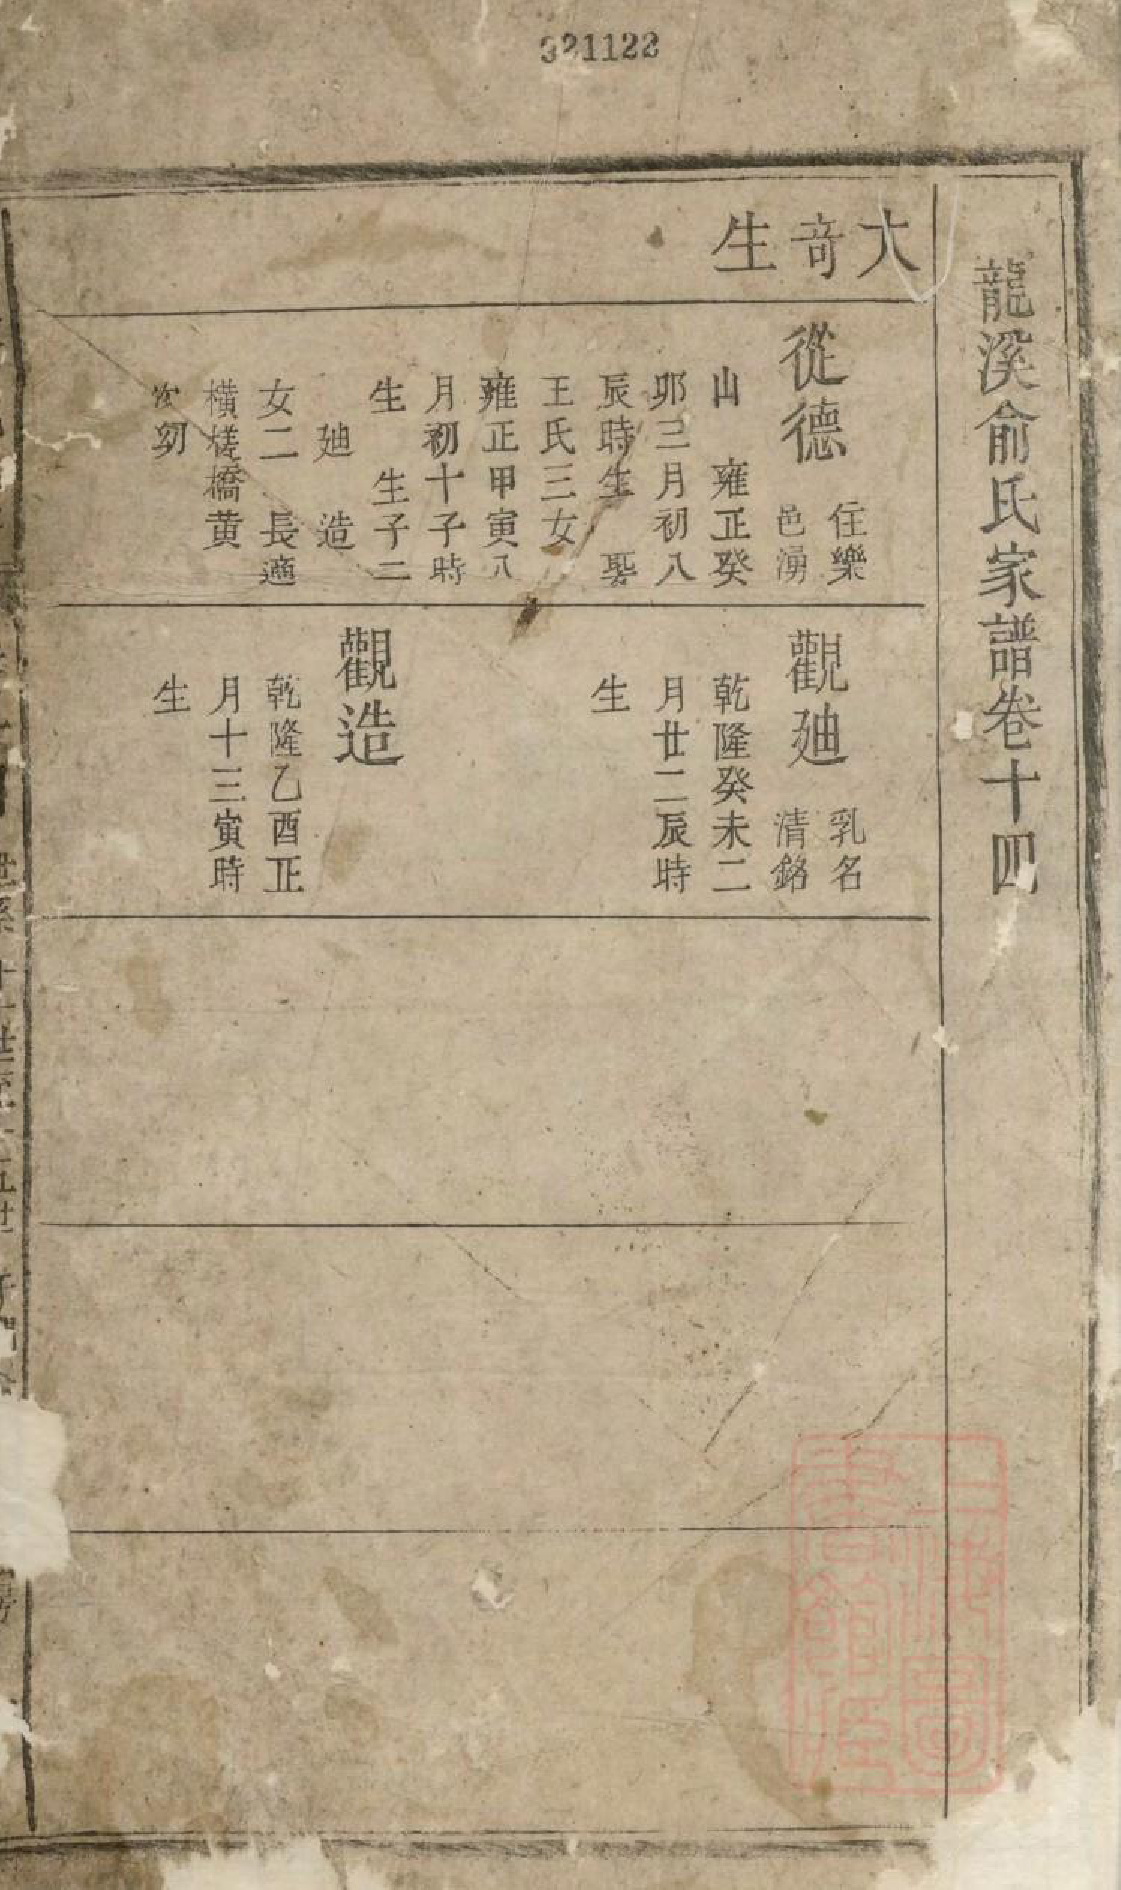 321122
龍溪俞氏家譜卷十四
大奇生
從德
住樂
邑湧
山 雍正癸
卯三月初八
辰時生 娶
王氏三女
雍正甲寅八
月初十子時
生 生子二
廸 造
女二 長適
橫槎橋黄
次㓜
觀廸
乳名
清銘
乾隆癸未二
月廿二辰時
生
觀造
乾隆乙酉正
月十三寅時
生